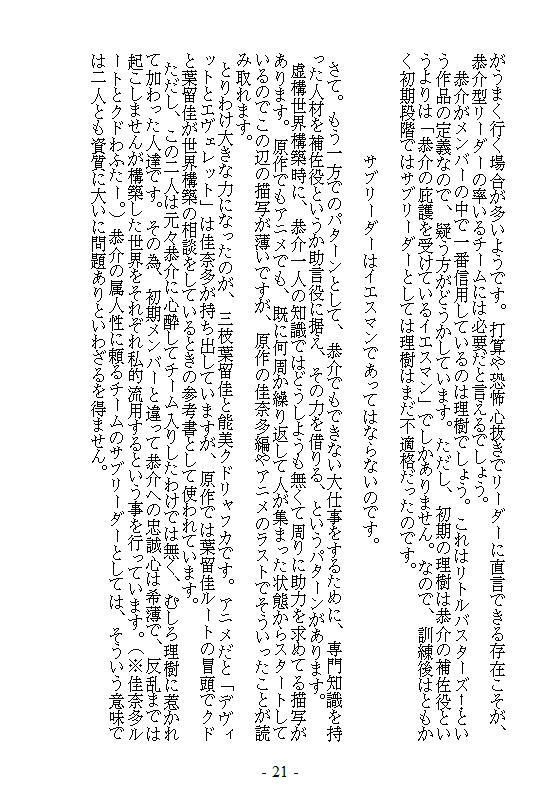 がうまく行く場合が多いようです。打算や恐怖心抜きでリーダーに直言できる存在こそが、
恭介型リーダーの率いるチームには必要だと言えるでしょう。
恭介がメンバーの中で一番信用しているのは理樹でしょう。これはリトルバスターズーとい
う作品の定義なので、疑う方がどうかしています。ただし、初期の理樹は恭介の補佐役とい
うよりは「恭介の庇護を受けているイエスマン」でしかありません。なので、訓練後はともか
く初期段階ではサブリーダーとしては理樹はまだ不適格だったのです。
サブリーダーはイエスマンであってはならないのです。
さて。もう一方でのパターンとして、恭介でもできない大仕事をするために、専門知識を持
った人材を補佐役というか助言役に据え、その力を借りる、というパターンがあります。
虚構世界構築時に、恭介一人の知識ではどうしようも無くて周りに助力を求めてる描写が
あります。原作でもアニメでも、既に何周か繰り返して人が集まった状態からスタートして
いるのでこの辺の描写が薄いですが、原作の佳奈多編やアニメのラストでそういったことが読
み取れます。
とりわけ大きな力になったのが、三枝葉留佳と能美クドリャフカです。アニメだと「デヴィ
ットとエヴェレット」は佳奈多が持ち出していますが、原作では葉留佳ルートの冒頭でクド
と葉留佳が世界構築の相談をしているときの参考書として使われています。
ただし、この二人は元々恭介に心酔してチーム入りしたわけでは無く、むしろ理樹に惹かれ
て加わった人達です。その為、初期メンバーと違って恭介への忠誠心は希薄で、反乱までは
起こしませんが構築した世界をそれぞれ私的流用するという事を行っています。（※佳奈多ル
ートとクドわふたー。）恭介の属人性に頼るチームのサブリーダーとしては、そういう意味で
は二人とも資質に大いに問題ありといわざるを得ません。
- 21 -